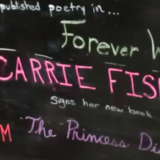 published poetry in...
Forever W
CARRIE FIS
Signs her new book
M The Princess Di